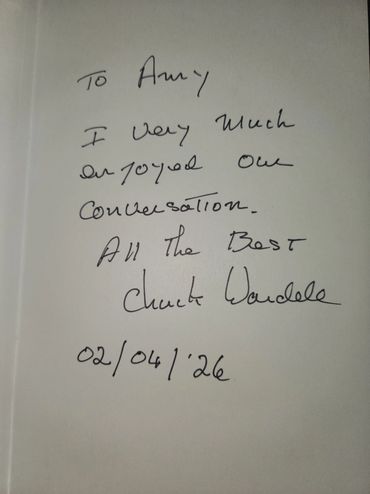 To Amy
I very much
enjoyed our
conversation.
All the Best
Chuck Wardele
02/04/'26